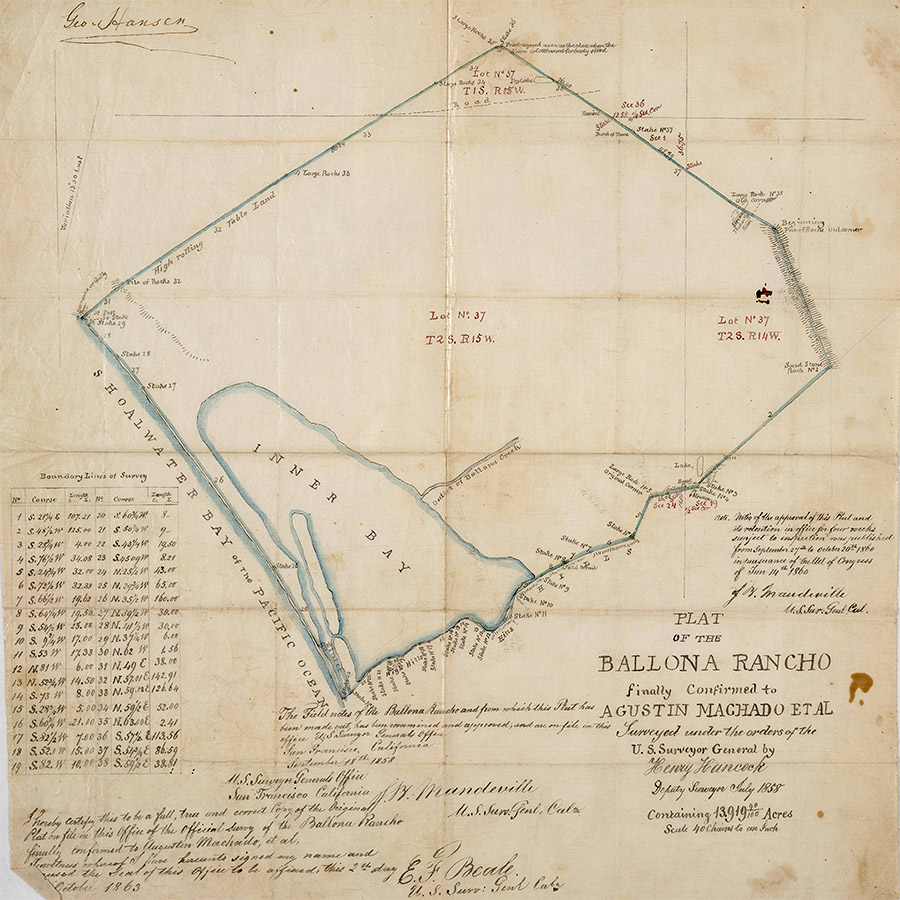 Geo. Hansen
Large Rocks 35
Stake 36
Lot No 37
T1S. R15W.
Large Rocks 34
Road
33
Sec 36
Stake No 37
Sec 1
Stake
37
Large Rock No 38
Old Corner
Beginning
Pile of Rocks Old corner
Variation 13°30' East
Large Rocks 33
High rolling 32 Table Land
Pile of Rocks 32
31
Stake 29
28
Stake 28
27
Stake 27
Lot No. 37
T2S. R15W.
Lot No 37
T2S. R14W.
Sand Stone
Rock No 2
2
SHOALWATER BAY OF THE PACIFIC OCEAN
INNER BAY
26
Outlet of Ballona Creek
Lake
Original Corner
Stake No 3
Sec 24
Sec 19
Stake No 9
Stake No 10
Stake No 11
Hills
Boundary Lines of Survey
No Course Length No Course Length
1 S. 21¼ E 107.21 20 S. 60¾ W 8.
2 S. 48½ W 125.00 21 S. 50¾ W 9.
3 S. 25¼ W 4.00 22 S. 43¼ W 19.50
4 S. 76½ W 34.08 23 S. 45 04 W 8.21
5 S. 24¾ W 32.00 24 N. 25½ W 43.00
6 S. 72½ W 32.33 25 N. 29¾ W 65.00
7 S. 66½ W 19.62 26 N. 35½ W 160.00
8 S. 64¼ W 19.50 27 N. 39½ W 30.00
9 S. 54½ W 23.00 28 N. 41¼ W 30.00
10 S. 9¾ W 17.00 29 N. 37¼ W 6.00
11 S. 53 W 17.33 30 N. 62 W 6.56
12 N. 81 W 6.00 31 N. 49 E 38.00
13 N. 52¾ W 14.50 32 N. 57 01 E 142.91
14 S. 73 W 8.00 33 N. 59 E 126.64
15 S. 28¾ W 5.00 34 N. 59½ E 52.00
16 S. 60¾ W 21.00 35 N. 63 00 E 2.41
17 S. 82½ W 7.00 36 S. 57½ E 113.56
18 S. 52 W 15.00 37 S. 51¾ E 86.59
19 S. 82 W 10.00 38 S. 59½ E 38.81
Note. Notice of the approval of this Plat and
its retention in office for four weeks
subject to inspection was published
from September 27th to October 20th 1860
in pursuance of the Act of Congress
of Jun 14th 1860
J. W. Mandeville
U.S. Sur. Genl Cal.
PLAT
OF THE
BALLONA RANCHO
finally Confirmed to
AGUSTIN MACHADO ET AL
Surveyed under the orders of the
U.S. Surveyor General by
Henry Hancock
Deputy Surveyor July 1858
Containing 13,919 90/100 Acres
Scale 40 Chains to an Inch
The Field notes of the Ballona Rancho and from which this Plat has
been made out, has been examined and approved, and are on file in this
office U.S. Surveyor Generals Office
San Francisco, California
September 18th 1858
U.S. Surveyor Generals Office
San Francisco California
J. W. Mandeville
U.S. Sur. Genl. Cala
I hereby certify this to be a full, true and correct Copy of the Original
Plat on file in this Office of the Official Survey of the Ballona Rancho
finally confirmed to Augustin Machado, et al,
In witness whereof I have hereunto signed my name and
caused the Seal of this Office to be affixed, this 2nd day
October 1863
E. F. Beale
U. S. Surv: Genl Cala